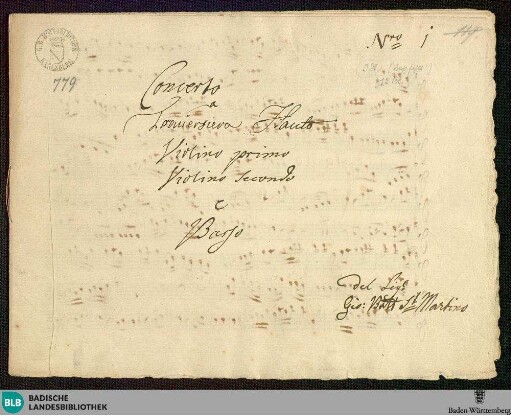 Nro 1
779
Concerto
a
Traversiera Flauto
Violino primo
Violino Secondo
e
Basso
del Sigr
Gio: Batt St Martino
BLB
BADISCHE
LANDESBIBLIOTHEK
Baden-Württemberg